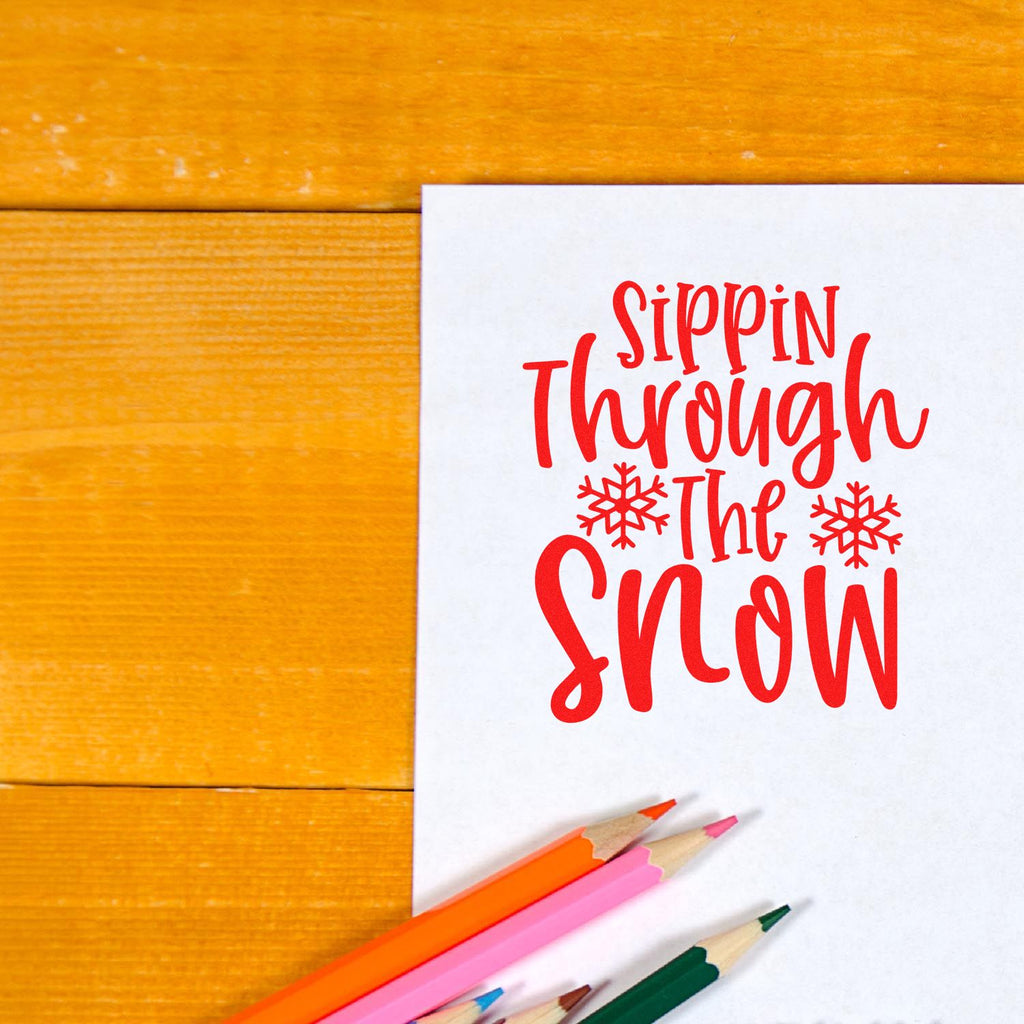 Sippin
Through
The
Snow